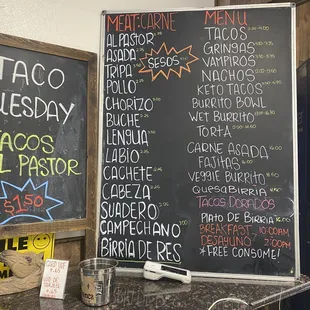 TACO
UESDAY
TACOS
AL PASTOR
$1.50
MEAT: CARNE
AL PASTOR
ASADA
TRIPA
POLLO
CHORIZO
BUCHE
LENGUA
LABIO
CACHETE
CABEZA
SUADERO
CAMPECHANO
BIRRIA DE RES
SESOS
MENU
TACOS
GRINGAS
VAMPIROS
NACHOS
KETO TACOS
BURRITO BOWL
WET BURRITO
TORTA
CARNE ASADA
FAJITAS
VEGGIE BURRITO
QUESABIRRIA
TACOS DORADOS
PLATO DE BIRRIA
BREAKFAST 10:00AM
DESAYUNO 2:00PM
*FREE CONSOME!